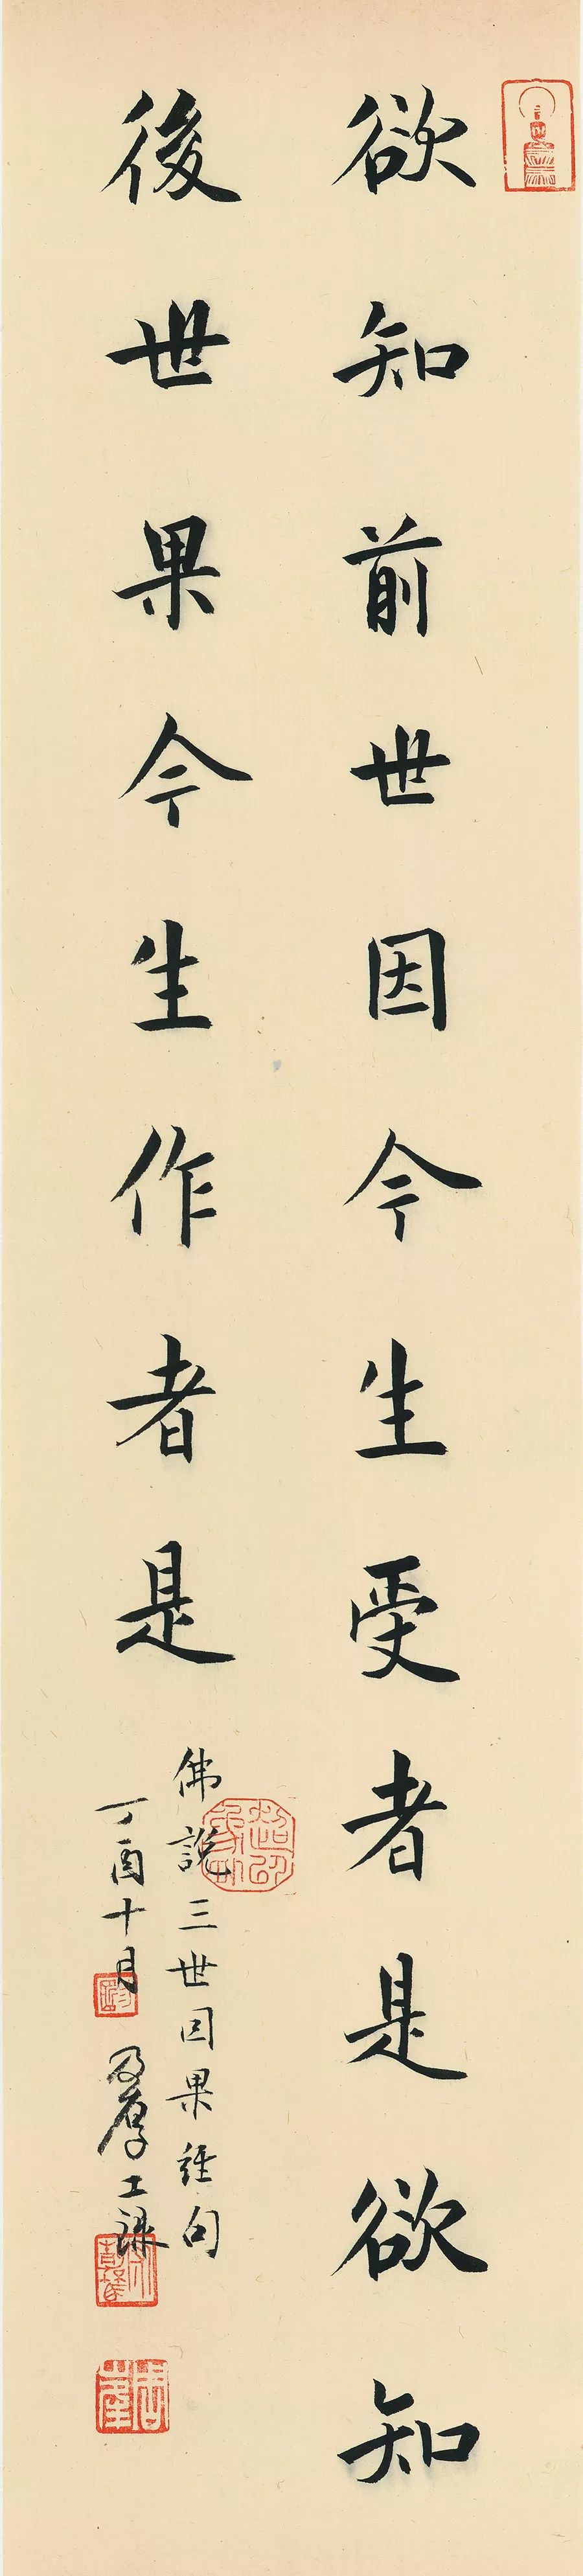 欲知前世因今生受者是欲知
後世果今生作者是
佛說三世因果經句
丁酉十月